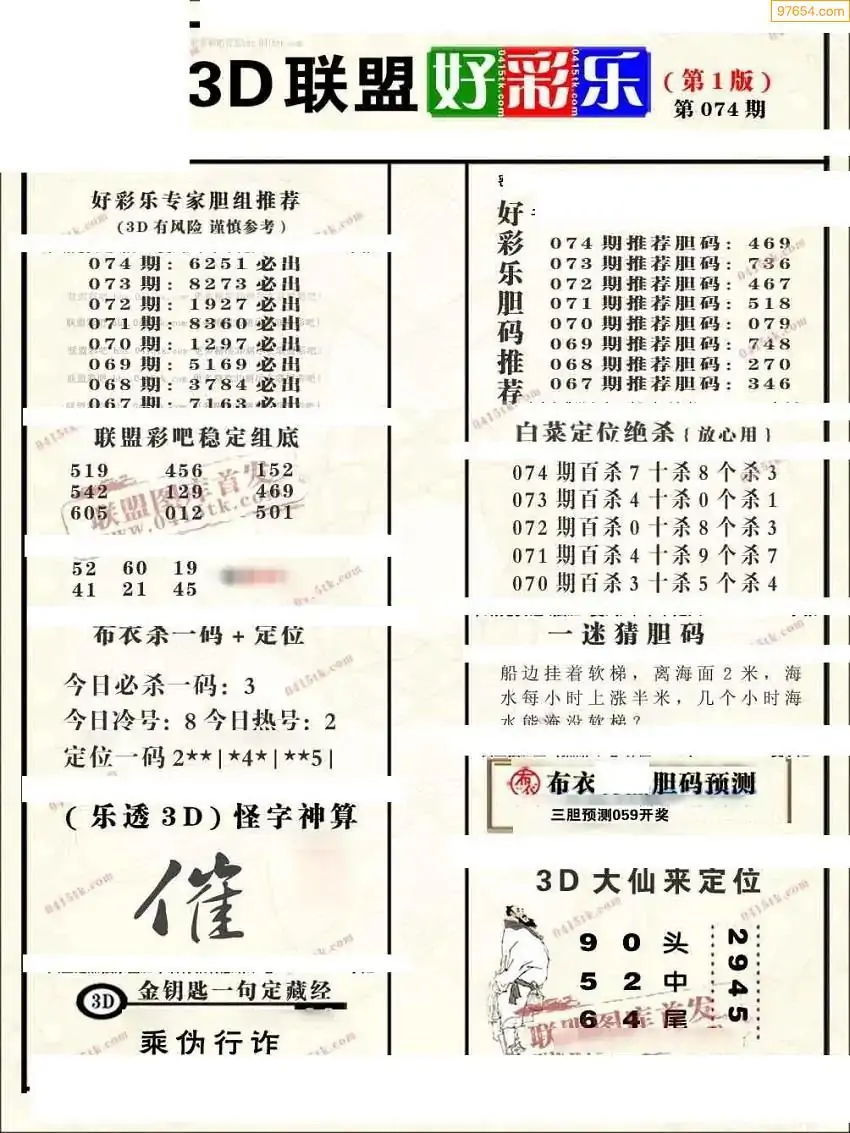 97654.com
3D联盟好彩乐
(第1版)
第074期
好彩乐专家胆组推荐
(3D有风险 谨慎参考)
074期: 6251必出
073期: 8273必出
072期: 1927必出
071期: 8360必出
070期: 1297必出
069期: 5169必出
068期: 3784必出
067期: 7163必出
联盟彩吧稳定组底
519 456 152
542 129 469
605 012 501
联盟图库首发
www.0415tk.com
52 60 19
41 21 45
布衣杀一码+定位
今日必杀一码: 3
今日冷号: 8 今日热号: 2
定位一码 2**|*4*|**5|
(乐透3D)怪字神算
催
3D 金钥匙一句定藏经
乘伪行诈
好彩乐胆码推荐
074期推荐胆码: 469
073期推荐胆码: 736
072期推荐胆码: 467
071期推荐胆码: 518
070期推荐胆码: 079
069期推荐胆码: 748
068期推荐胆码: 270
067期推荐胆码: 346
白菜定位绝杀{放心用}
074期百杀7十杀8个杀3
073期百杀4十杀0个杀1
072期百杀0十杀8个杀3
071期百杀4十杀9个杀7
070期百杀3十杀5个杀4
一迷猜胆码
船边挂着软梯，离海面2米，海
水每小时上涨半米，几个小时海
水能淹没软梯?
布衣 布衣 胆码预测
三胆预测059开奖
3D大仙来定位
9 0 头
5 2 中
6 4 尾
2945
联盟图库首发